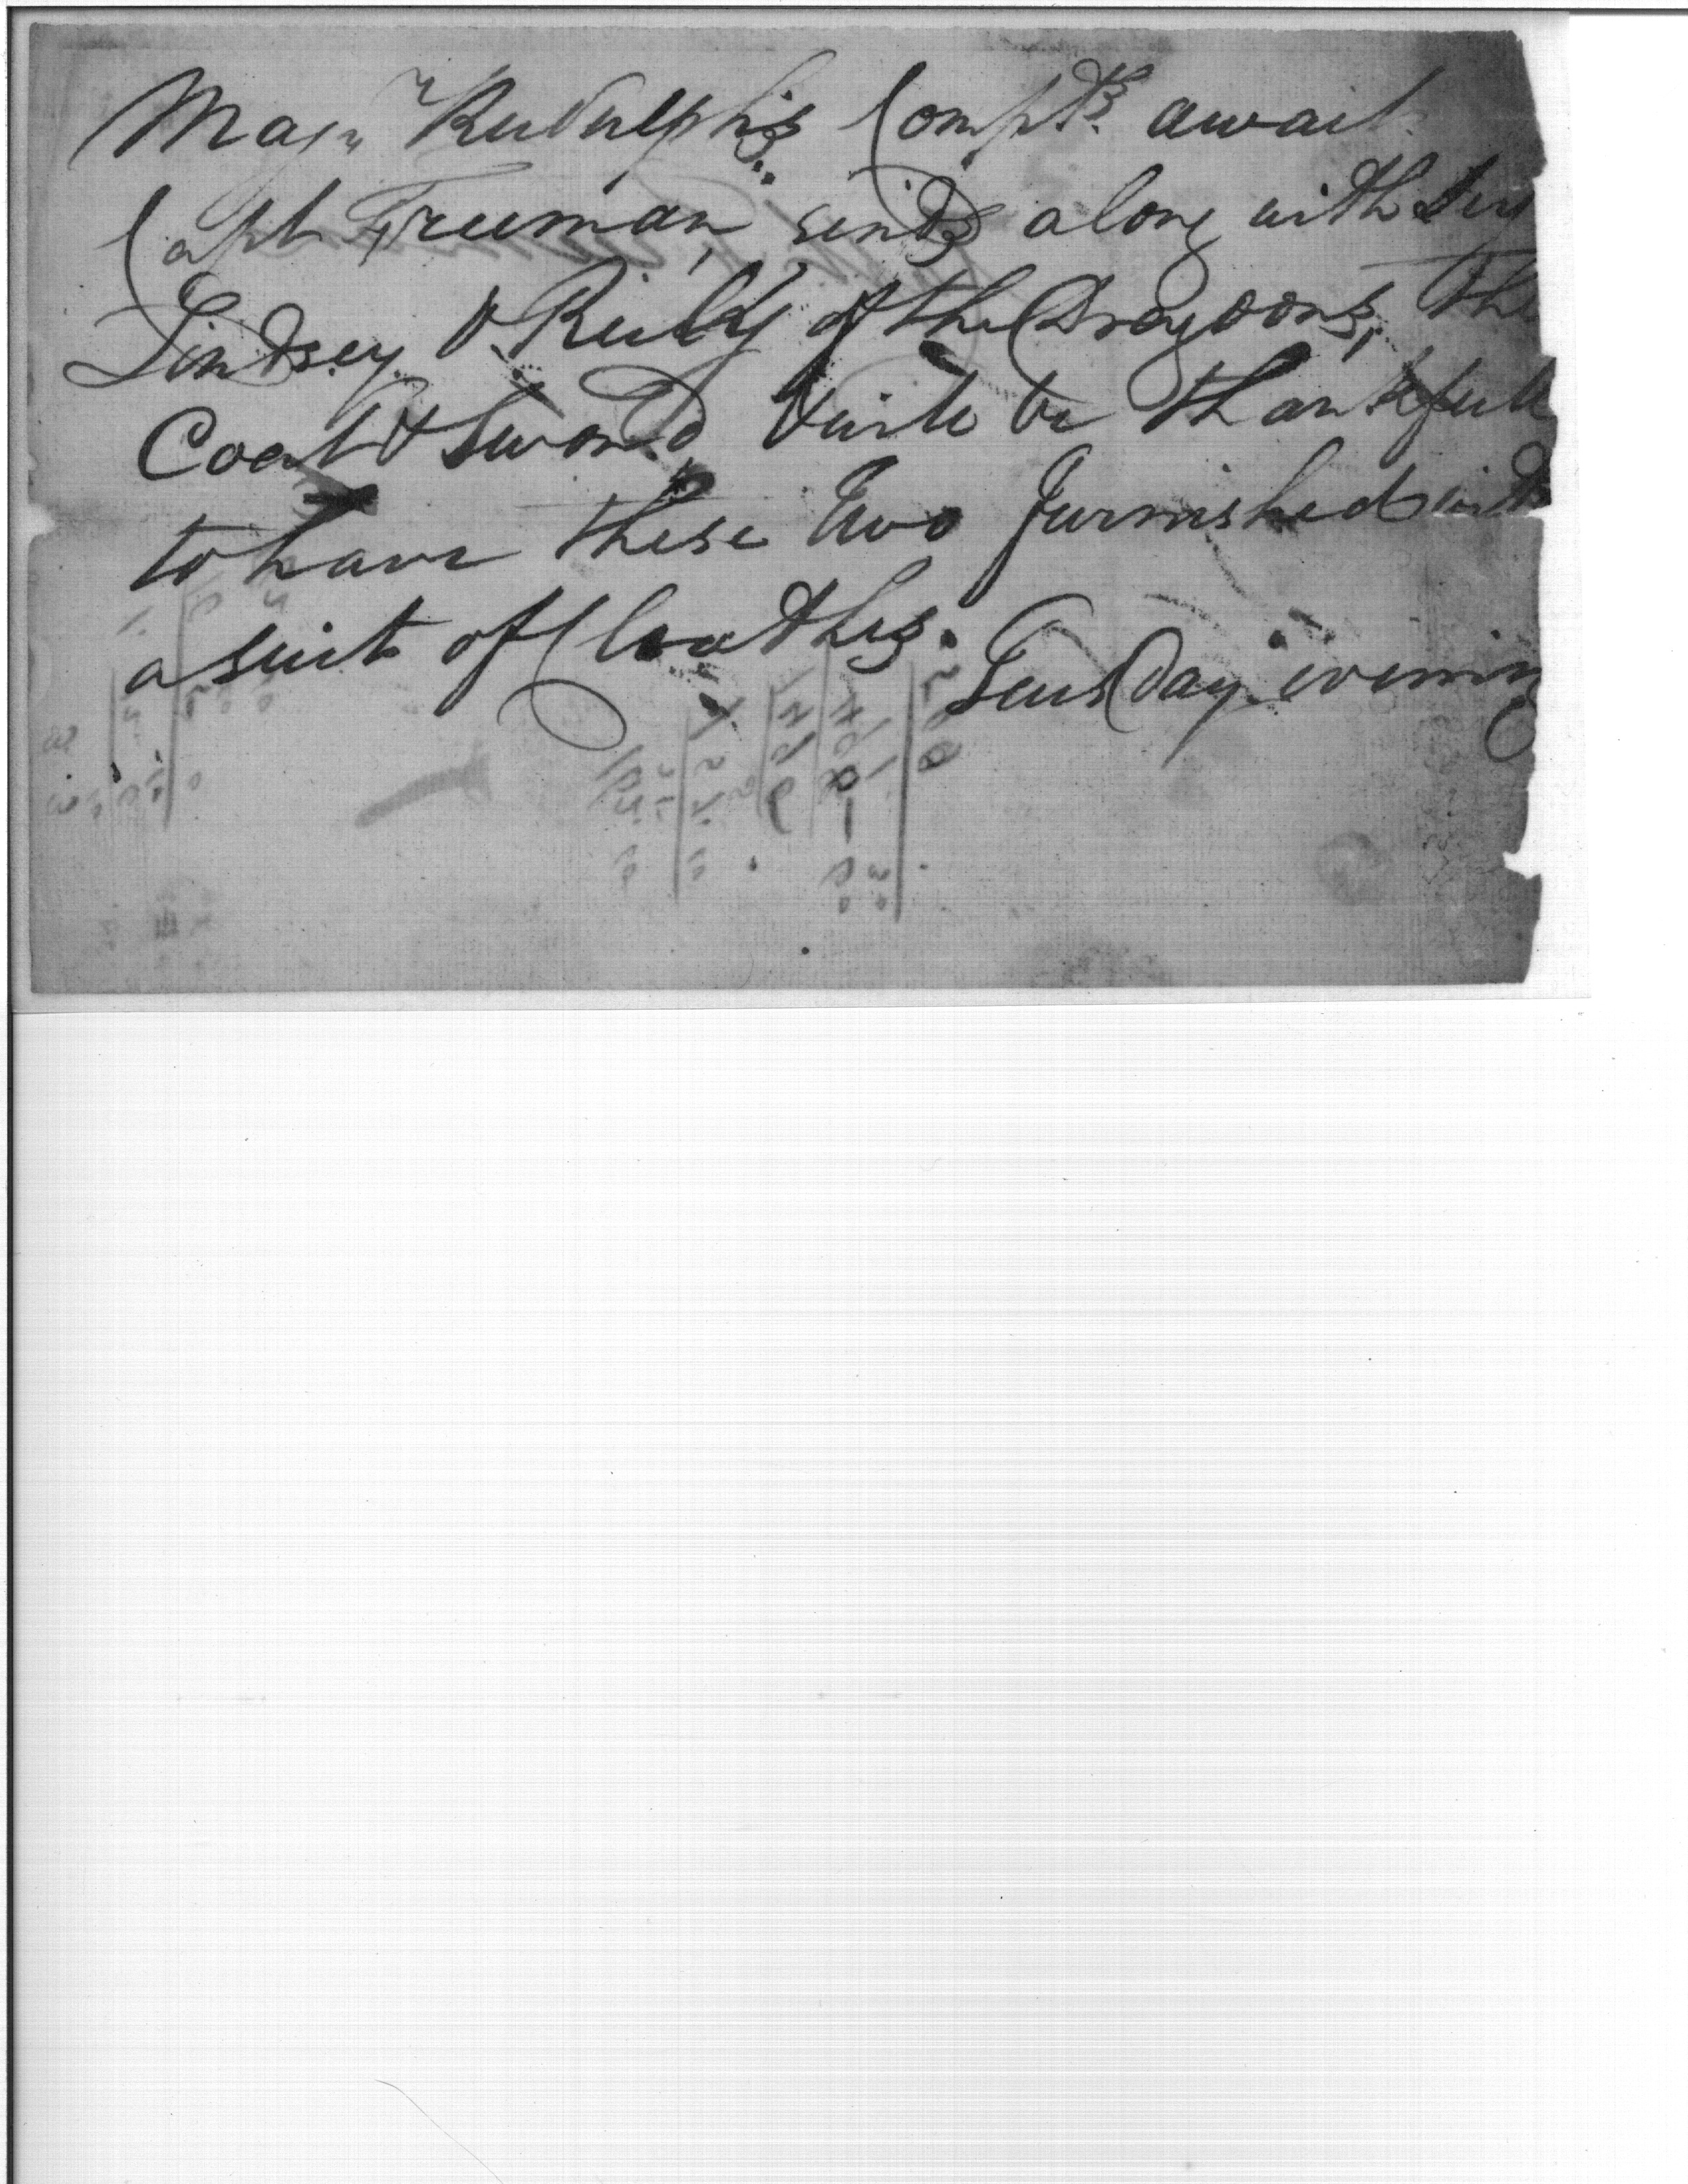 Majr Rudulph's Compts. await
Capt Freeman, sends along with Serj
Lindsey & Reily of the Dragoons, the
Coat & Sword, Will be thankfull
to have these two furnished with
a suit of Cloathes.
Teusday evening